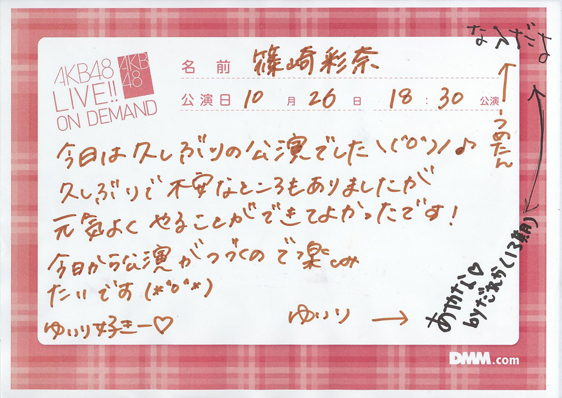 AKB48
LIVE!!
ON DEMAND
AKB
48
名前 篠崎彩奈
公演日 10月26日 18:30公演
なつだな
つめたん
今日は久しぶりの公演でした\(^o^)/♪
久しぶりで不安なところもありましたが
元気よくやることができてよかったです!
今日から公演がつづくので楽しみ
たいです(*^o^*)
ゆいり好きー♡
ゆいり →
あやなん♡
byだれか(13期)
DMM.com